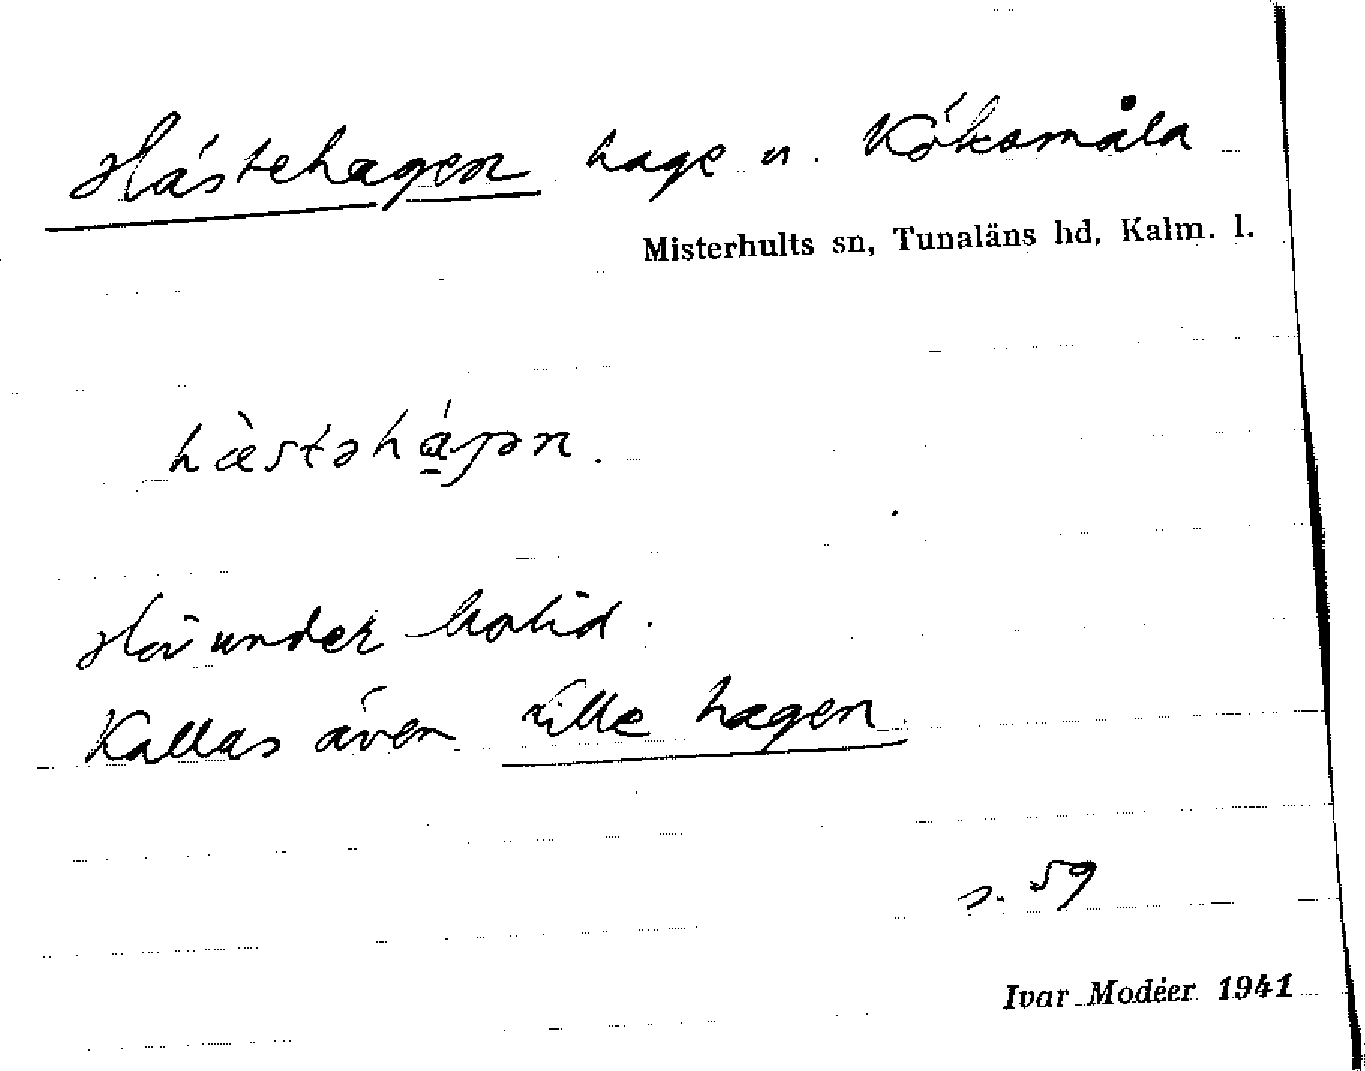 Hästehagen hage u. Köksmåla
Misterhults sn, Tunaläns hd, Kalm. l.
hæ̀stəhágən.
Hör under
Kallas även Lille hagen
s. 59
Ivar Modéer 1941